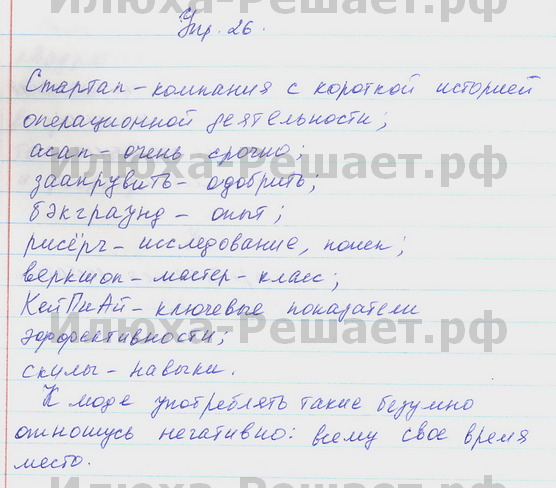 Илюха-Решает.рф
Упр. 26.
Стартап – компания с короткой историей
операционной деятельности;
асап – очень срочно;
Илюха-Решает.рф
заапрувить – одобрить;
бэкграунд – опыт;
рисёрч – исследование, поиск;
веркшоп – мастер-класс;
КейПиАй – ключевые показатели
Илюха-Решает.рф
эффективности;
скилы – навыки.
К моде употреблять такие безумно
отношусь негативно: всему свое время
место.
Илюха-Решает.рф